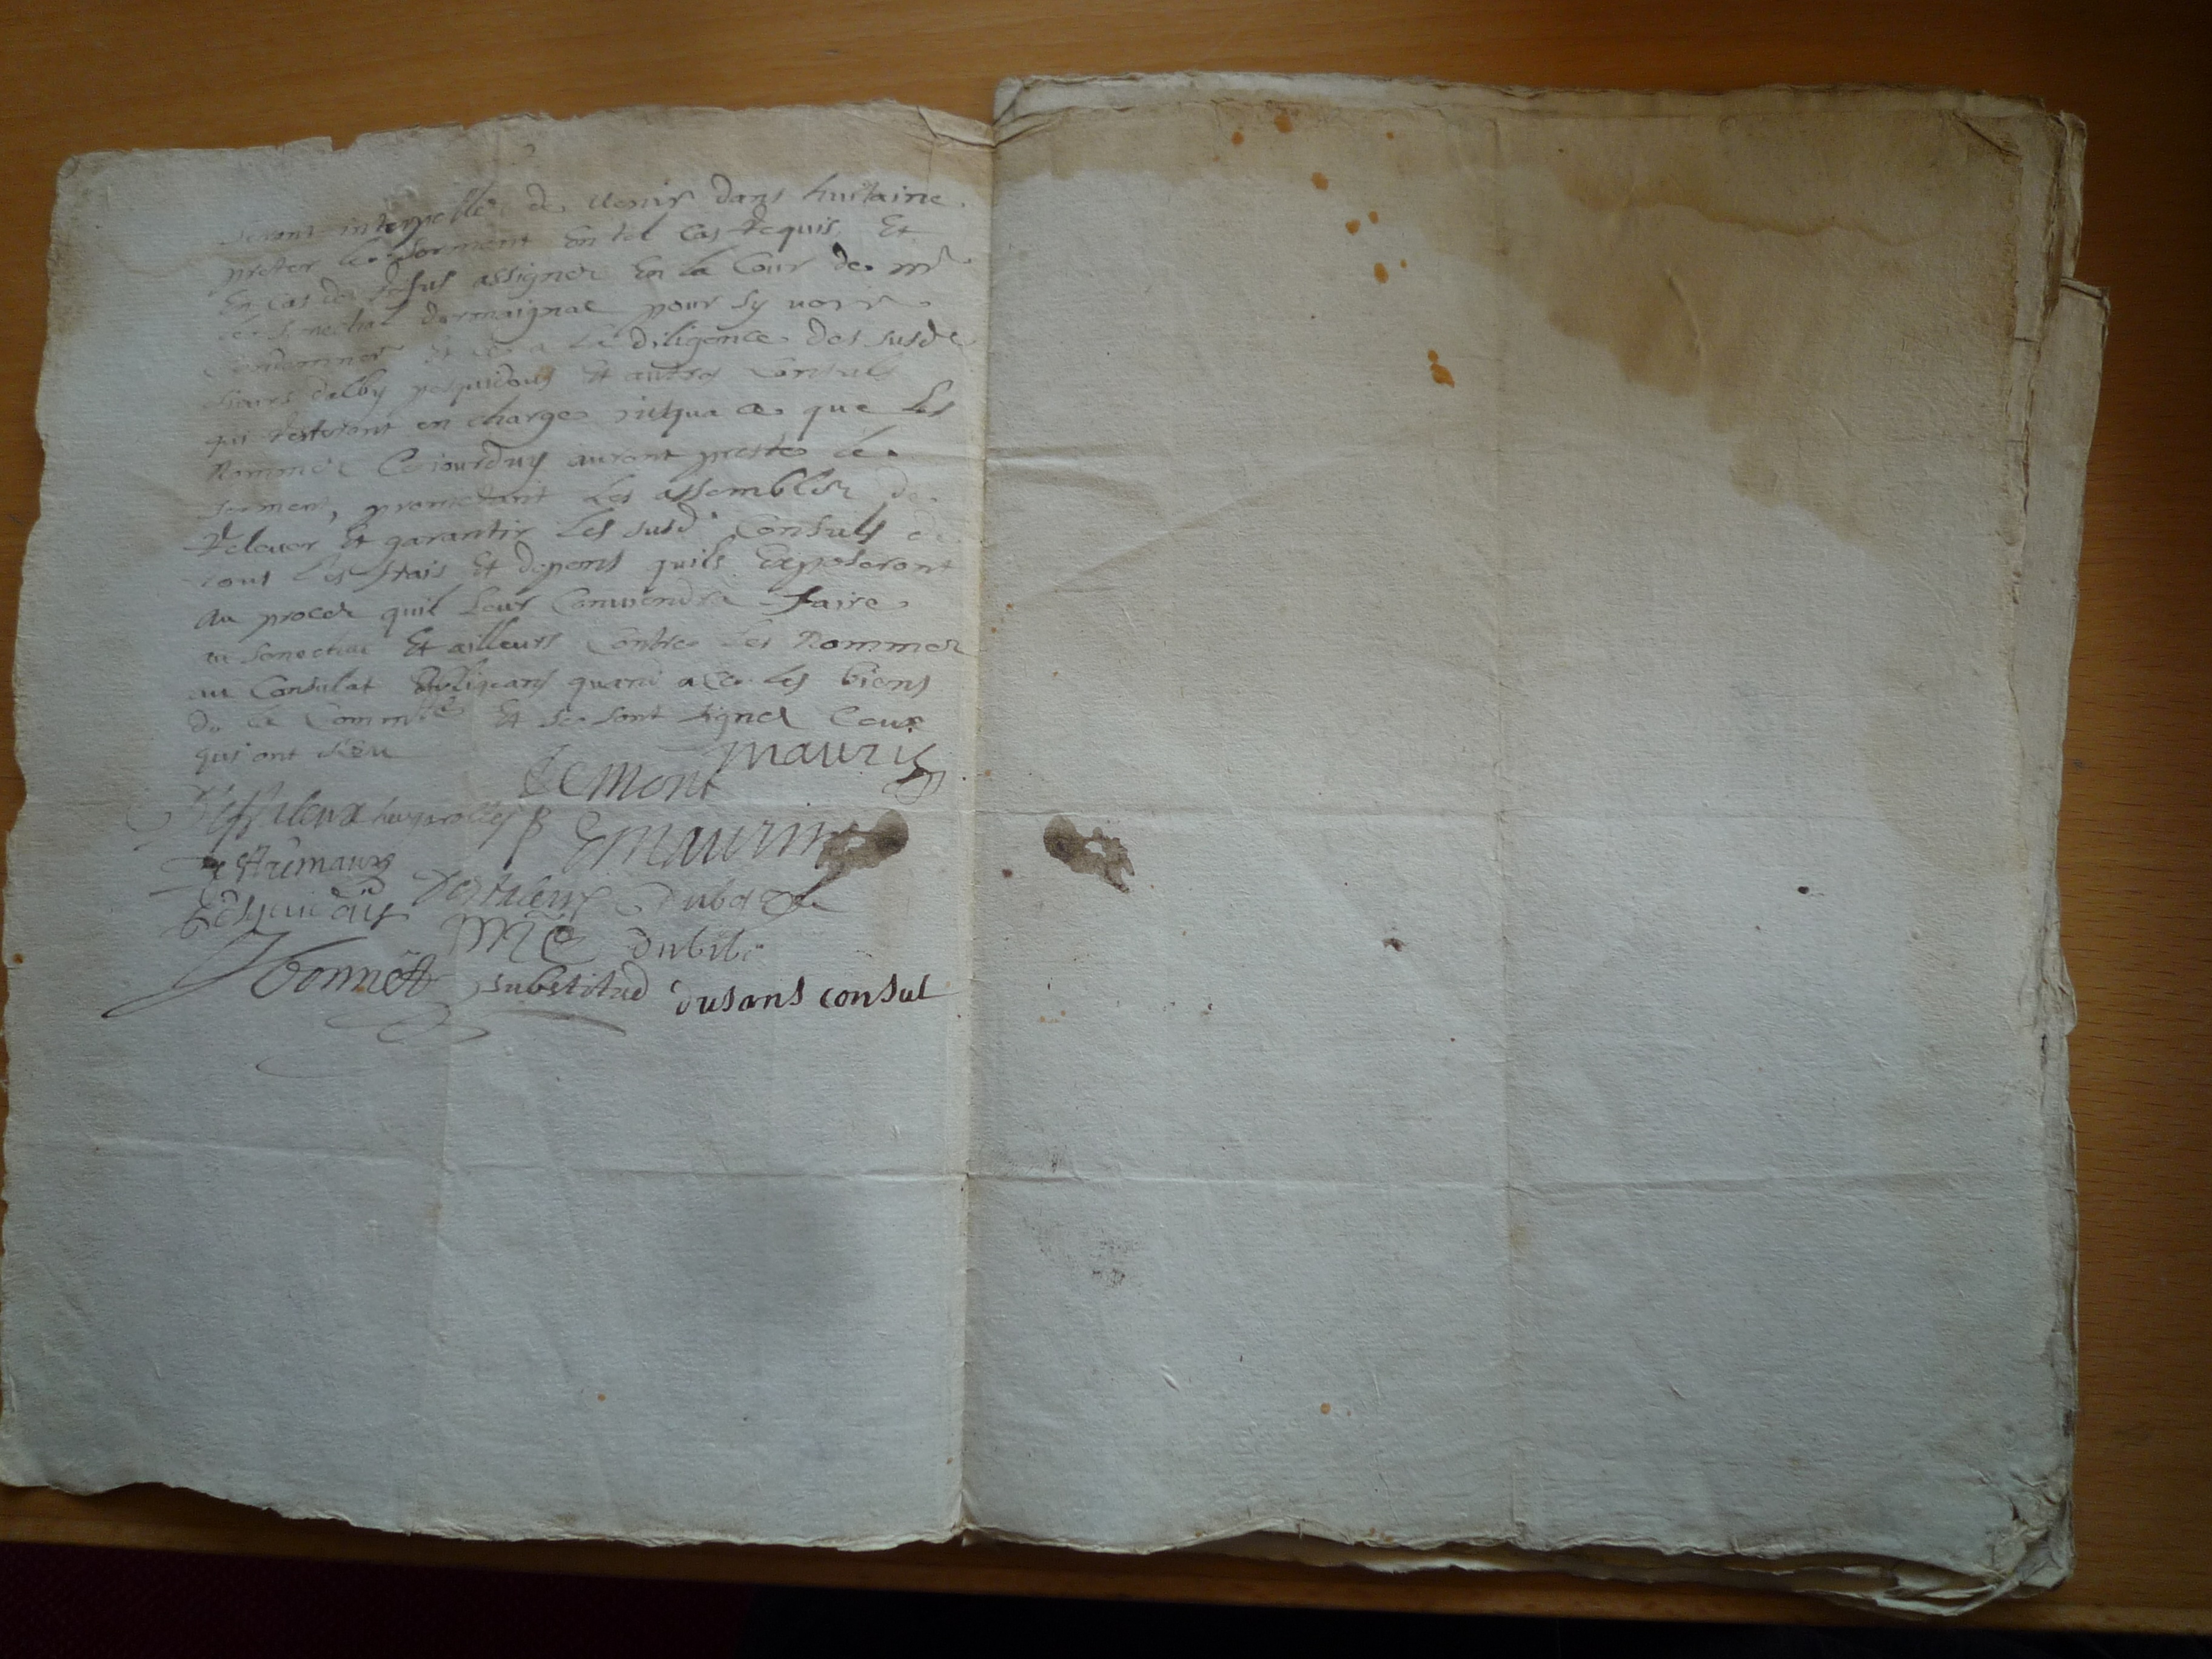 seront interpellés de venir dans huitaine
prester le serment en tel cas requis, Et
En cas de refus assignés En la Cour de mr
le senechal darmaignac pour sy voir
Condemner Et ce a la diligence des susdt
sieurs dalby pesquidous Et autres Consuls
qui resteront en charge jusqua ce que Les
Nommés Cejourduy auront presté le
serment, prometant Les assemblés de
Relever Et garantir Les susd Consuls de
tous les frais Et depens quils Exposeront
Au procés quil Leur Conviendra faire
au senechal Et ailleurs Contre Les Nommés
au Consulat obligeans quand a ce les biens
de la Commté Et se sont signés Ceux
qui ont sceu
mauris
Lemont
Emaurin
Destremaux
Pesquidous
Dubibe
Jbonnet substitud dusans consul